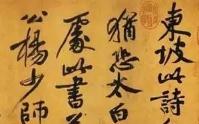 東坡此詩
猶恐太白
處此書兼
公楊少師